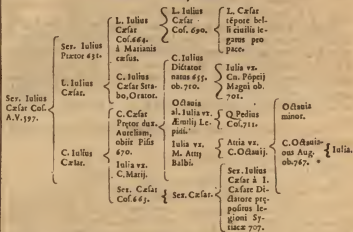 Sex. Iulius
Cæsar Cos.
A.V.597.
Sex. Iulius
Prætor 631.
L. Iulius
Cæsar.
C. Iulius
Cæsar.
L. Iulius
Cæsar
Cos.664.
à Marianis
cæsus.
C. Iulius
Cæsar Stra-
bo, Orator.
C. Cæsar
Prętor dux.
Aurelium,
obijt Pisis
670.
Iulia vx.
C. Marij.
Sex. Cæsar
Cos.663.
L. Iulius
Cæsar
Cos. 690.
C. Iulius
Dictator
natus 655.
ob. 710.
Octauia
al. Iulia vx.
Æmilij Le-
pidi.
Iulia vx.
M. Attij
Balbi.
Sex. Cæsar.
L. Cæsar
tēpore bel-
li ciuilis le-
gatus pro
pace.
Iulia vx.
Cn. Pōpeij
Magni ob.
701.
Q. Pedius
Cos.711.
Attia vx.
C. Octauij.
Sex. Iulius
Cæsar à I.
Cæsare Di-
ctatore prę-
positus le-
gioni Sy-
riacæ 707.
Octauia
minor.
C. Octauia-
nus Aug.
ob.767.
Iulia.